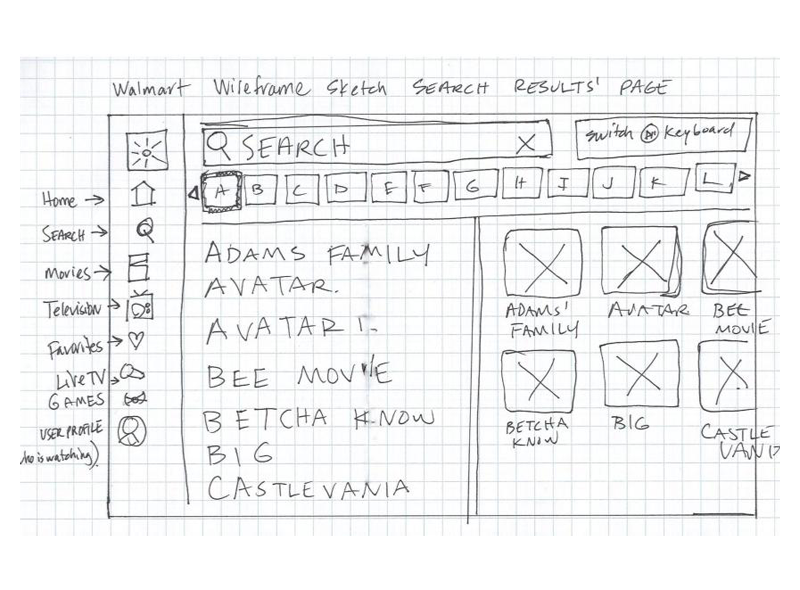 Walmart Wireframe Sketch SEARCH RESULTS' PAGE
SEARCH X
Switch Keyboard
A B C D E F G H I J K L
Home
SEARCH
Movies
Television
Favorites
Live TV
GAMES
USER PROFILE
ho is watching)
ADAMS FAMILY
AVATAR.
AVATAR I.
BEE MOVIE
BETCHA KNOW
BIG
CASTLEVANIA
ADAMS'
FAMILY
AVATAR
BEE
MOVIE
BETCHA
KNOW
BIG
CASTLE
VAN